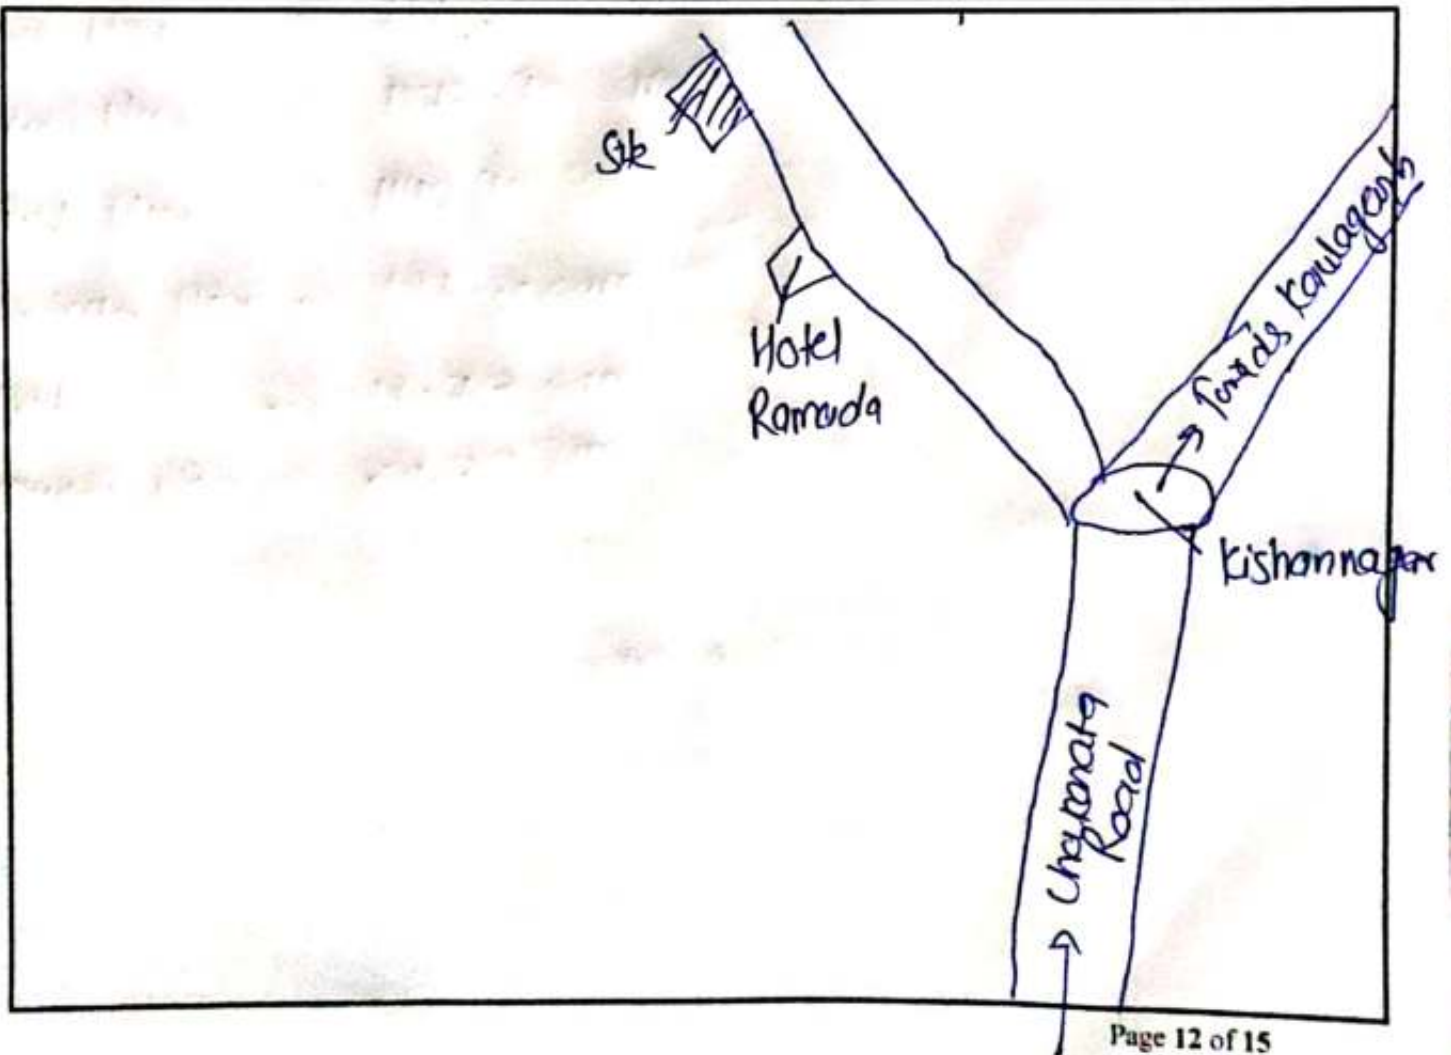 Site
Hotel
Ramada
Towards Kaulagarh
Kishannagar
Chakrata
Road
Page 12 of 15